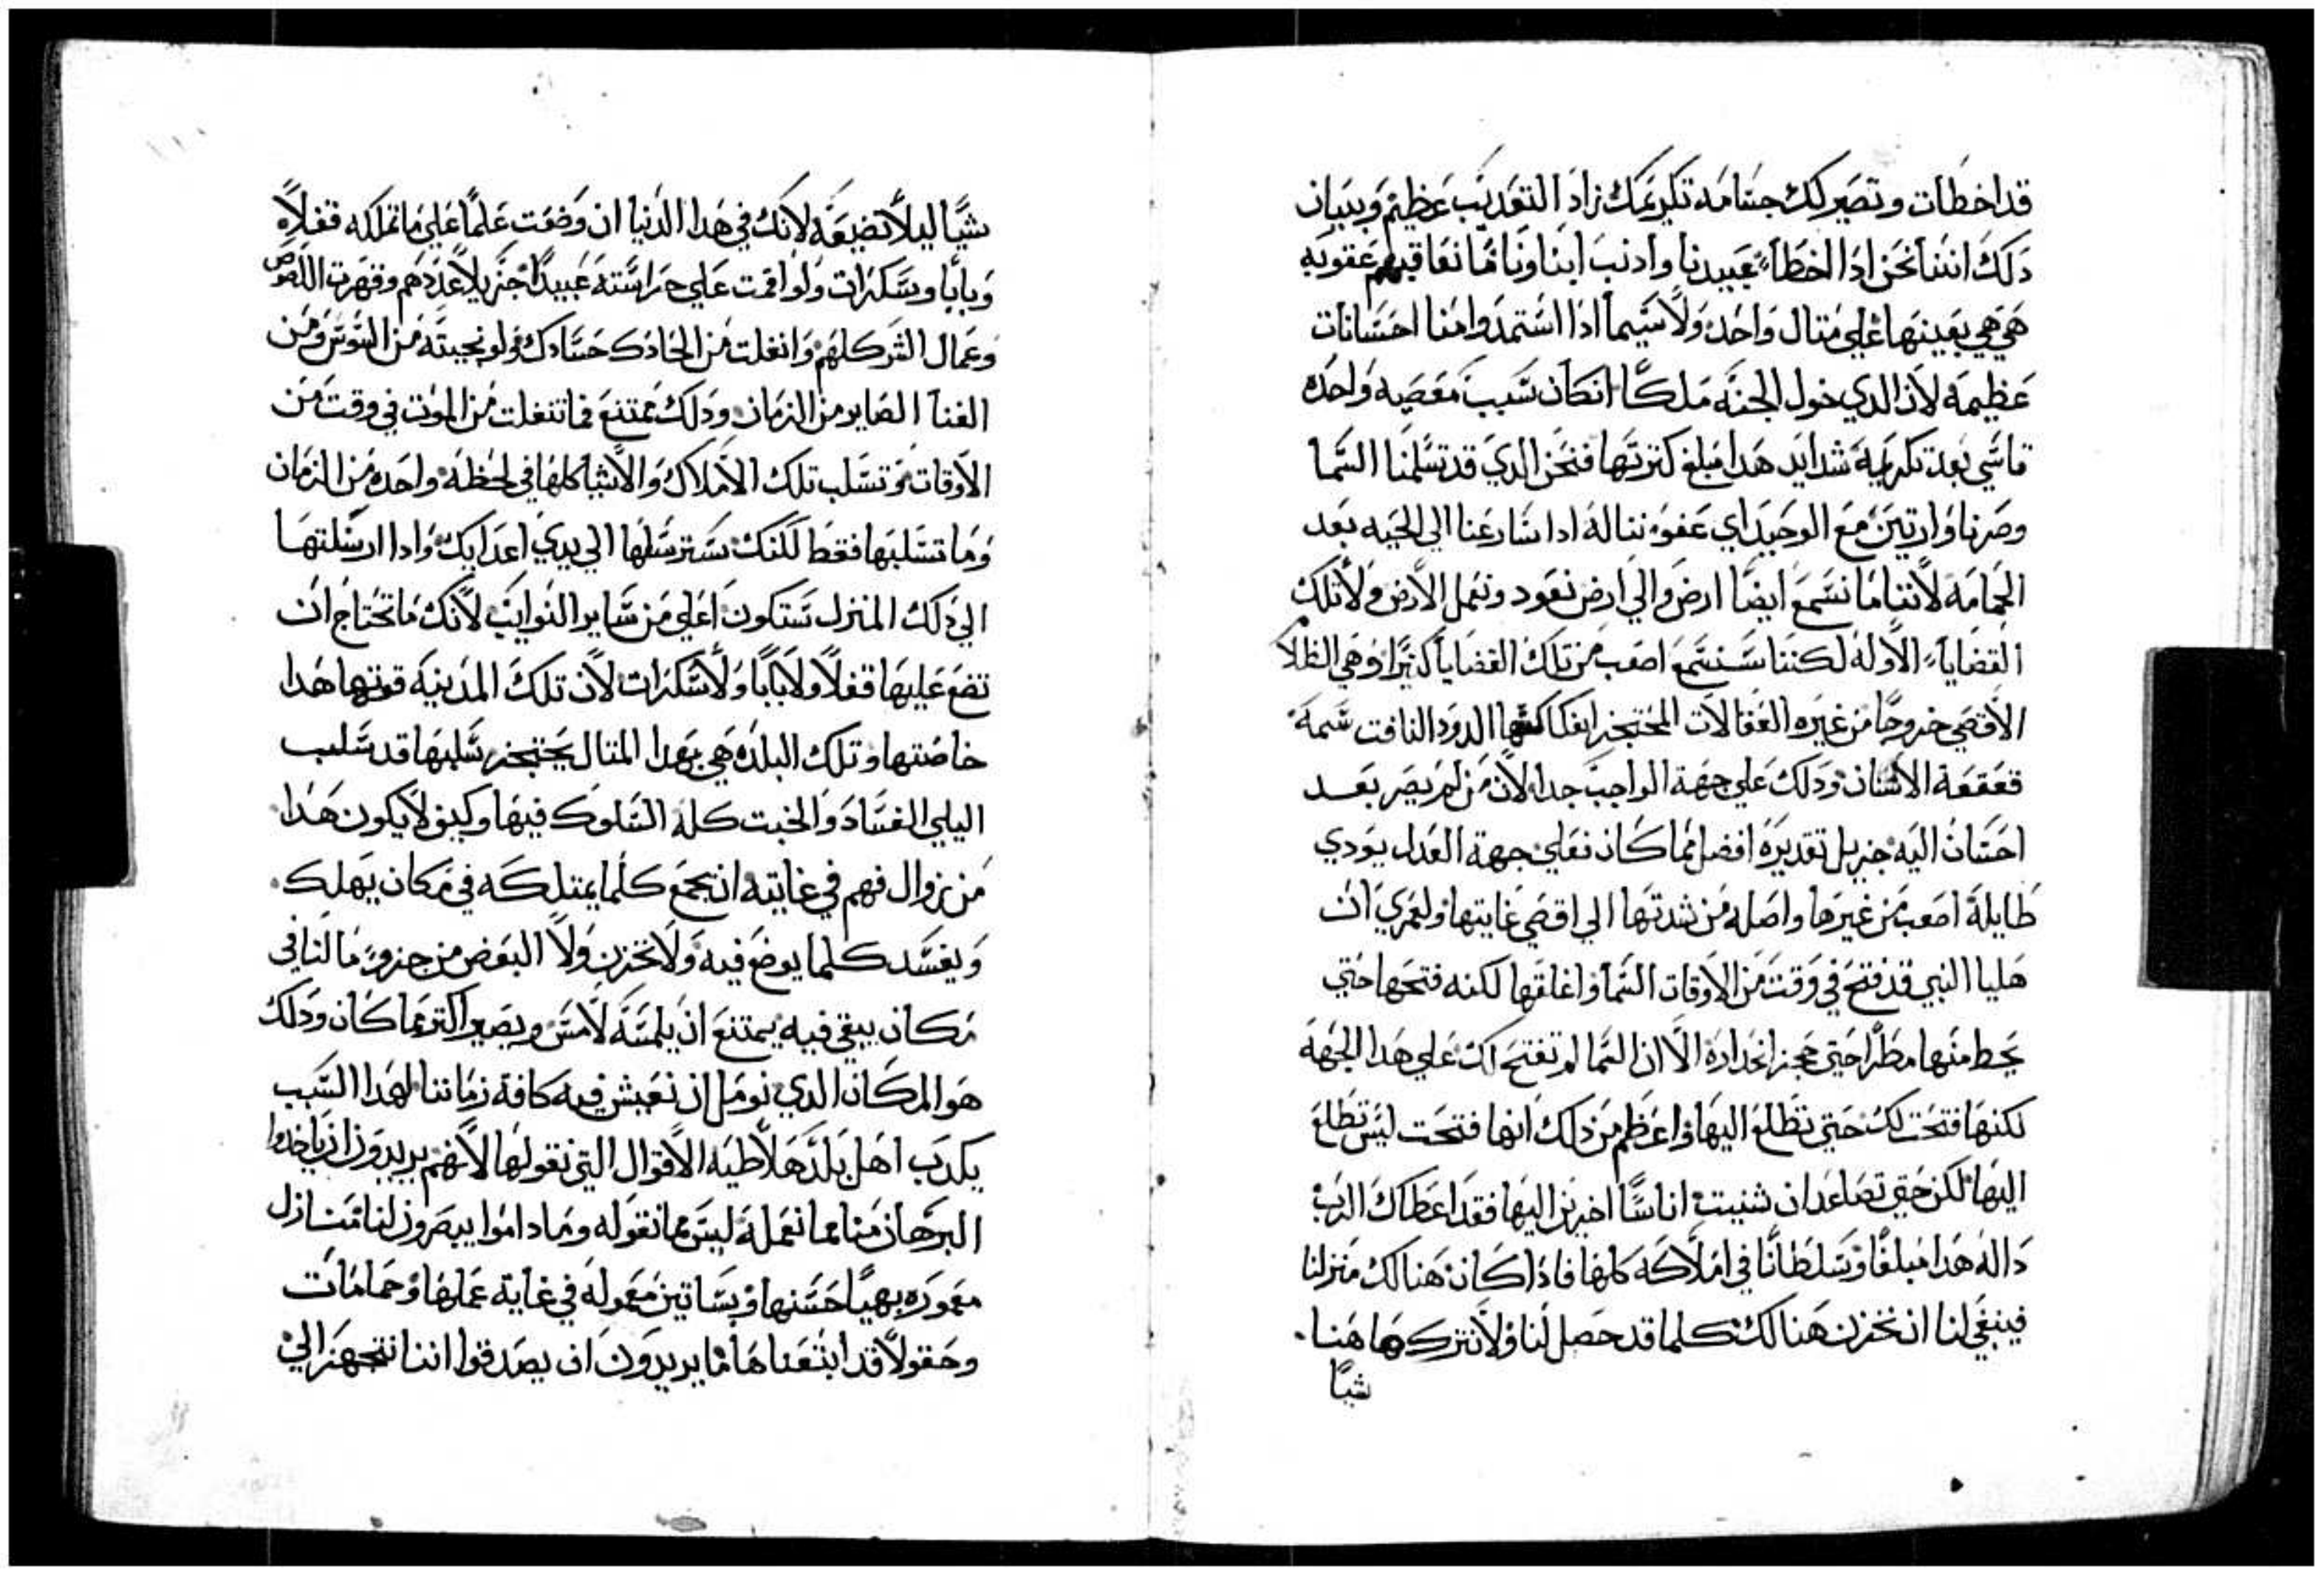 قد اخطات وتصير لك جسامه تكريمك زاد التعديب عظيم وبيان
دلك اننا نحن ادا اخطا عبيدنا وادنب ابناونا ما نعاقبهم عقوبه
هي هي بعينها علي متال واحده ولا سيما اذا استمدوا منا احسانات
عظيمه لان الدي خول الجنه ملكا ان كان سبب معصيه واحده
قاسي بعد تكريمه شدايد هدا مبلغ كترتها فنحن الدي قد تسلمنا السما
وصرنا وارتين مع الوحيد اي عفو نناله ادا سارعنا الي الحيه بعد
الحمامه لاننا ما نسمع ايضا ارض والي ارض نعود وتعمل الارض ولا تلك
القضايا الاوله لكننا سنسمع اصعب من تلك القضايا كثيرا وهي الظلا
الاقصي خروجا من غيره العقالات المحتجز انفكاكها الدود النافت سمه
قعقعة الاسنان ودلك علي جهة الواجب جدا لان من لم يصر بعد
احسان اليه جزيل تقديره افضل مما كان فعلي جهة العدل يودي
طايلة اصعب من غيرها واصله من شدتها الي اقصي غايتها ولعمري ان
هليا النبي قد فتح في وقت من الاوقات السما واغلقها لكنه فتحها حتي
يحط منها مطرا حتي حجز انحداره الا ان السما لم تفتح لك علي هدا الجهة
لكنها فتحت لك حتي تطلع اليها واعظم من ذلك انها فتحت ليس تطلع
اليها لكن حتي تصاعد ان شئت اناسا اخرين اليها فقد اعطاك الرب
دالة هدا مبلغا وسلطانا في املاكه كلها فادا كان هنالك منزلنا
فينبغي لنا ان نخزن هنالك كلما قد حصل لنا ولا نترك هاهنا
شيا
شيا ليلا نضيعه لانك في هدا الدنيا ان وضعت علما علي ما تملكه قفلا
وبابا وسكرات ولو اقمت علي حراسته عبيدا جزيلا عددهم وقهرت اللصوص
وعمال الشر كلهم وانفلت من الحادك حسادك ولو نجيته من السوس ومن
الفنا الصاير من الزمان ودلك ممتنع فما تنفلت من الموت في وقت من
الاوقات وتسلب تلك الاملاك والاشيا كلها في لحظه واحده من الزمان
وما تسلبها فقط لكنك سترسلها الي يدي اعدايك وادا ارسلتها
الي ذلك المنزل ستكون اعلي من ساير النوايب لانك ما تحتاج ان
تضع عليها قفلا ولا بابا ولا سكرات لان تلك المدينة قوتها هدا
خاصتها وتلك البلده هي بهدا المتال يحتجز سلبها قد سلب
البلي الفساد والخبت كله السلوك فيها وكيف لا يكون هدا
من زوال فهم في غايته ان يجمع كلما يمتلكه في مكان يهلك
ويفسد كلما يوضع فيه ولا تخزن ولا البعض من جزو ما لنا في
مكان يبقي فيه يمتنع ان يلمسه لامس ويصير اكتر مما كان ودلك
هو المكان الدي نومل ان نعيش فيه كافة زماننا لهدا السبب
يكدب اهل بلد هلاطيه الاقوال التي نقولها لانهم يريدون ان ياخدوا
البرهان منا مما نعمله ليس مما نقوله وما داموا يبصرون لنا منازل
معموره بهيا حسنها وبساتين معموله في غاية عملها وحمامات
وحقولا قد ابتعناها ما يريدون ان يصدقوا اننا نتجهز الي